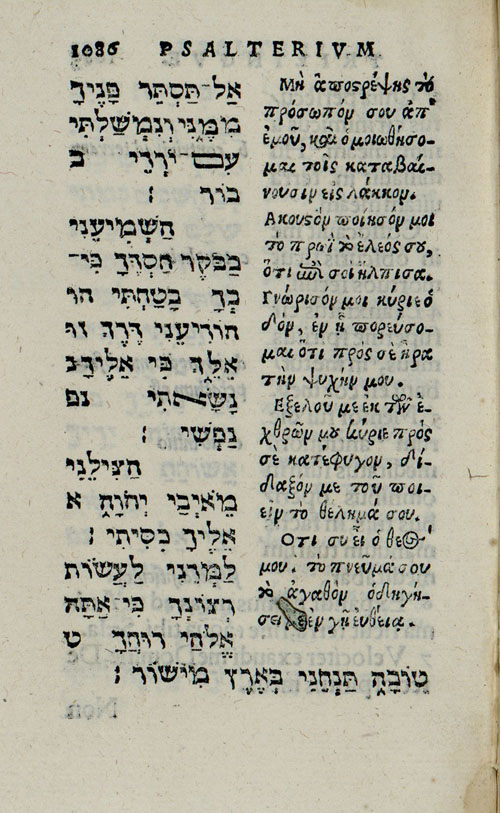 1086 PSALTERIVM
אַל־תַּסְתֵּר פָּנֶיךָ
מִמֶּנִּי וְנִמְשַׁלְתִּי
עִם־יֹרְדֵי ב
בוֹר :
הַשְׁמִיעֵנִי
בַבֹּקֶר חַסְדֶּךָ כִּי־
בְךָ בָטָחְתִּי הו
הוֹדִיעֵנִי דֶּרֶךְ זוּ
אֵלֵךְ כִּי אֵלֶיךָ־נ
נָשָׂאתִי נפ
נַפְשִׁי :
הַצִּילֵנִי
מֵאֹיְבַי יְהוָה א
אֵלֶיךָ כִסִּיתִי :
לַמְּדֵנִי לַעֲשׂוֹת
רְצוֹנֶךָ כִּי אַתָּה
אֱלֹהַי רוּחֲךָ ט
טוֹבָה תַּנְחֵנִי בְּאֶרֶץ מִישׁוֹר :
Μὴ ἀποστρέψῃς τὸ
πρόσωπόν σου ἀπ᾽
ἐμοῦ, καὶ ὁμοιωθήσο-
μαι τοῖς καταβαί-
νουσιν εἰς λάκκον.
Ακουστόν ποίησόν μοι
τὸ πρωῒ τὸ ἔλεός σου,
ὅτι ἐπὶ σοὶ ἤλπισα.
Γνώρισόν μοι κύριε ὁ
δόν, ἐν ᾗ πορεύσο-
μαι ὅτι πρὸς σὲ ἦρα
τὴν ψυχήν μου.
Εξελοῦ με ἐκ τῶν ἐ-
χθρῶν μου κύριε πρὸς
σὲ κατέφυγον, δί-
δαξόν με τοῦ ποι-
εῖν τὸ θέλημά σου.
Οτι σὺ εἶ ὁ θεός
μου. τὸ πνεῦμα σου
τὸ ἀγαθὸν ὁδηγή-
σει με ἐν γῇ εὐθείᾳ.